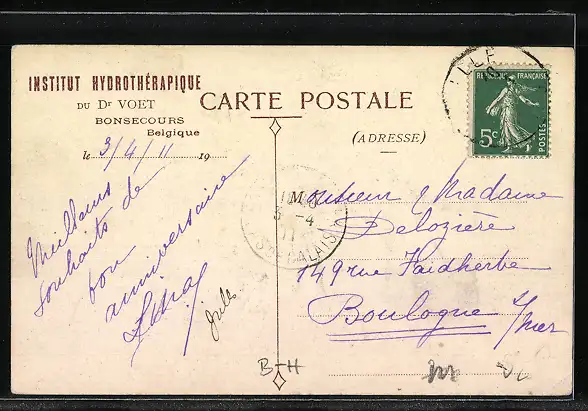 INSTITUT HYDROTHÉRAPIQUE
DU Dr VOET
BONSECOURS
Belgique
le 3/4/11 19
CARTE POSTALE
(ADRESSE)
REPUBLIQUE FRANÇAISE
5c
POSTES
LILLE
3 -4
11
CALAIS
Meilleurs
souhaits de
bon
anniversaire
Jules
Monsieur & Madame
Delozière
149 rue Faidherbe
Boulogne s/mer
B-H